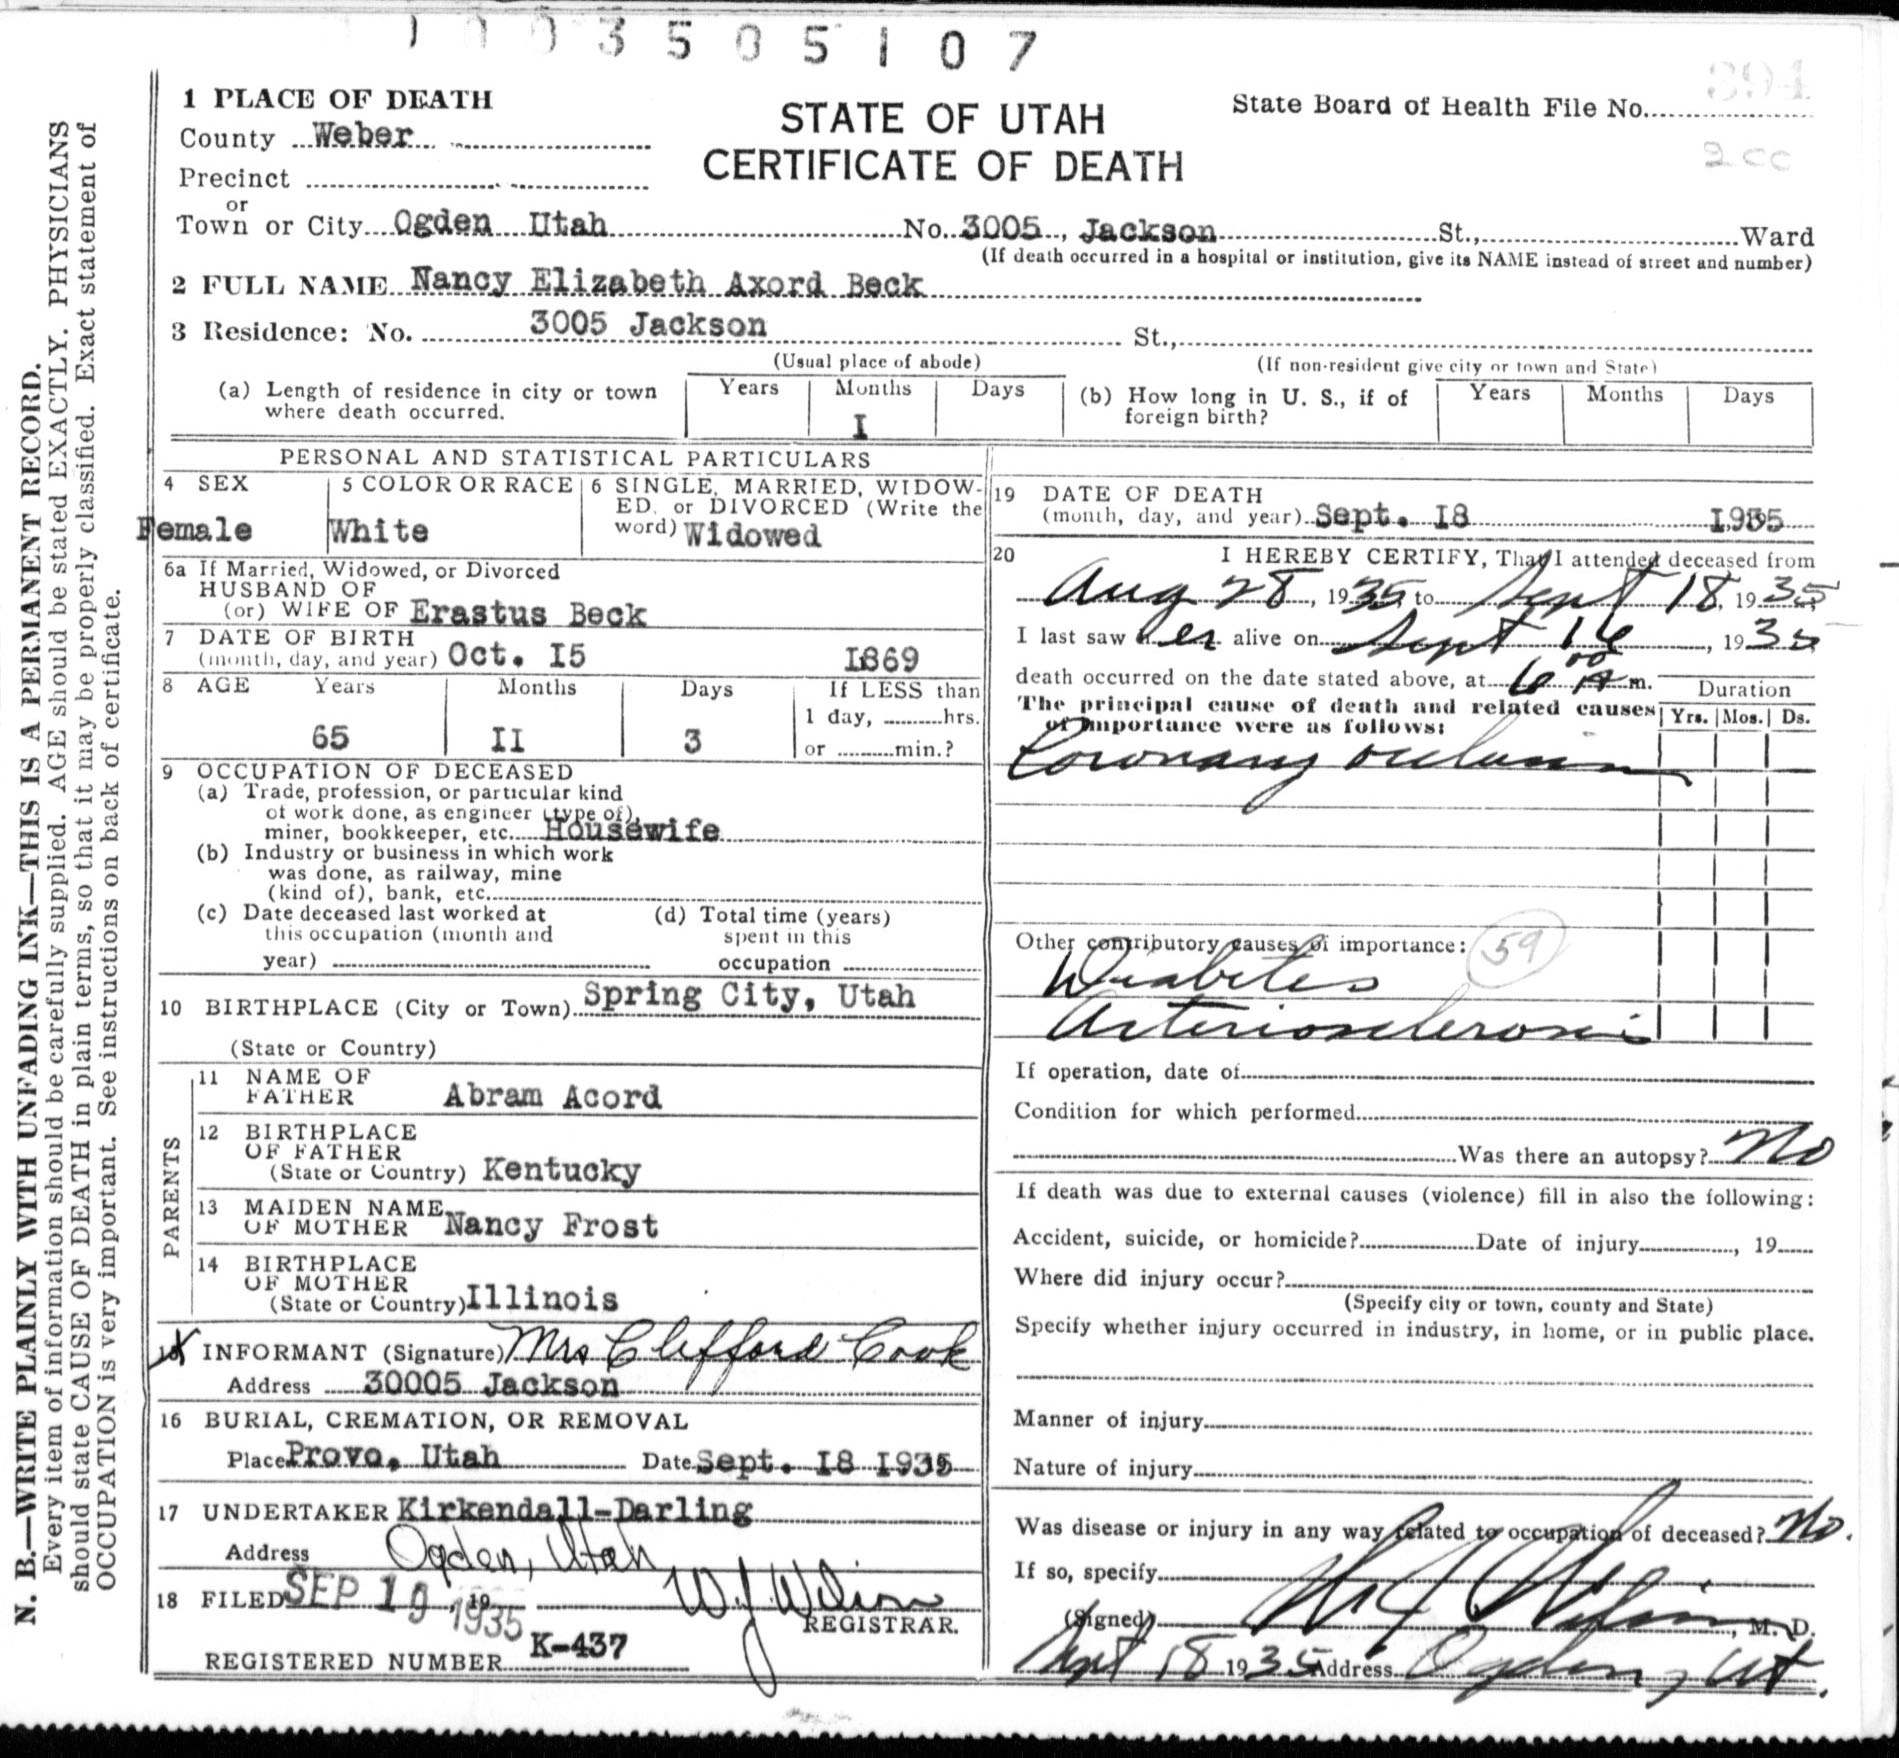 1003505107
1 PLACE OF DEATH
STATE OF UTAH
CERTIFICATE OF DEATH
State Board of Health File No. 394
2 CC
County Weber
Precinct
or
Town or City Ogden Utah No. 3005, Jackson St., Ward
(If death occurred in a hospital or institution, give its NAME instead of street and number)
2 FULL NAME Nancy Elizabeth Axord Beck
3 Residence: No. 3005 Jackson St.,
(Usual place of abode) (If non-resident give city or town and State)
(a) Length of residence in city or town where death occurred. Years Months I Days
(b) How long in U. S., if of foreign birth? Years Months Days
PERSONAL AND STATISTICAL PARTICULARS
4 SEX Female
5 COLOR OR RACE White
6 SINGLE, MARRIED, WIDOW-
ED, or DIVORCED (Write the
word) Widowed
6a If Married, Widowed, or Divorced
HUSBAND OF
(or) WIFE OF Erastus Beck
7 DATE OF BIRTH
(month, day, and year) Oct. I5 I869
8 AGE Years Months Days If LESS than
1 day, hrs.
65 II 3 or min.?
9 OCCUPATION OF DECEASED
(a) Trade, profession, or particular kind
of work done, as engineer (type of),
miner, bookkeeper, etc. Housewife
(b) Industry or business in which work
was done, as railway, mine
(kind of), bank, etc.
(c) Date deceased last worked at
this occupation (month and
year)
(d) Total time (years)
spent in this
occupation
10 BIRTHPLACE (City or Town) Spring City, Utah
(State or Country)
PARENTS
11 NAME OF
FATHER Abram Acord
12 BIRTHPLACE
OF FATHER
(State or Country) Kentucky
13 MAIDEN NAME
OF MOTHER Nancy Frost
14 BIRTHPLACE
OF MOTHER
(State or Country) Illinois
15 INFORMANT (Signature) Mrs Clifford Cook
Address 30005 Jackson
16 BURIAL, CREMATION, OR REMOVAL
Place Provo, Utah Date Sept. I8 I935
17 UNDERTAKER Kirkendall-Darling
Address Ogden, Utah
18 FILED SEP 19 1935, 19 W. J. Wilson
REGISTRAR.
REGISTERED NUMBER K-437
19 DATE OF DEATH
(month, day, and year) Sept. I8 I935
20 I HEREBY CERTIFY, That I attended deceased from
Aug 28, 1935, to Sept 18, 1935
I last saw her alive on Sept 16, 1935
death occurred on the date stated above, at 6 00 A m.
The principal cause of death and related causes
of importance were as follows:
Duration
Yrs. Mos. Ds.
Coronary occlusion
Other contributory causes of importance: 59
Diabetes
Arteriosclerosis
If operation, date of
Condition for which performed
Was there an autopsy? No
If death was due to external causes (violence) fill in also the following:
Accident, suicide, or homicide? Date of injury, 19
Where did injury occur?
(Specify city or town, county and State)
Specify whether injury occurred in industry, in home, or in public place.
Manner of injury
Nature of injury
Was disease or injury in any way related to occupation of deceased? No.
If so, specify
(Signed) W J Wilson, M. D.
Sept 18 1935 Address Ogden, Ut.
N. B.—WRITE PLAINLY WITH UNFADING INK—THIS IS A PERMANENT RECORD.
Every item of information should be carefully supplied. AGE should be stated EXACTLY. PHYSICIANS
should state CAUSE OF DEATH in plain terms, so that it may be properly classified. Exact statement of
OCCUPATION is very important. See instructions on back of certificate.